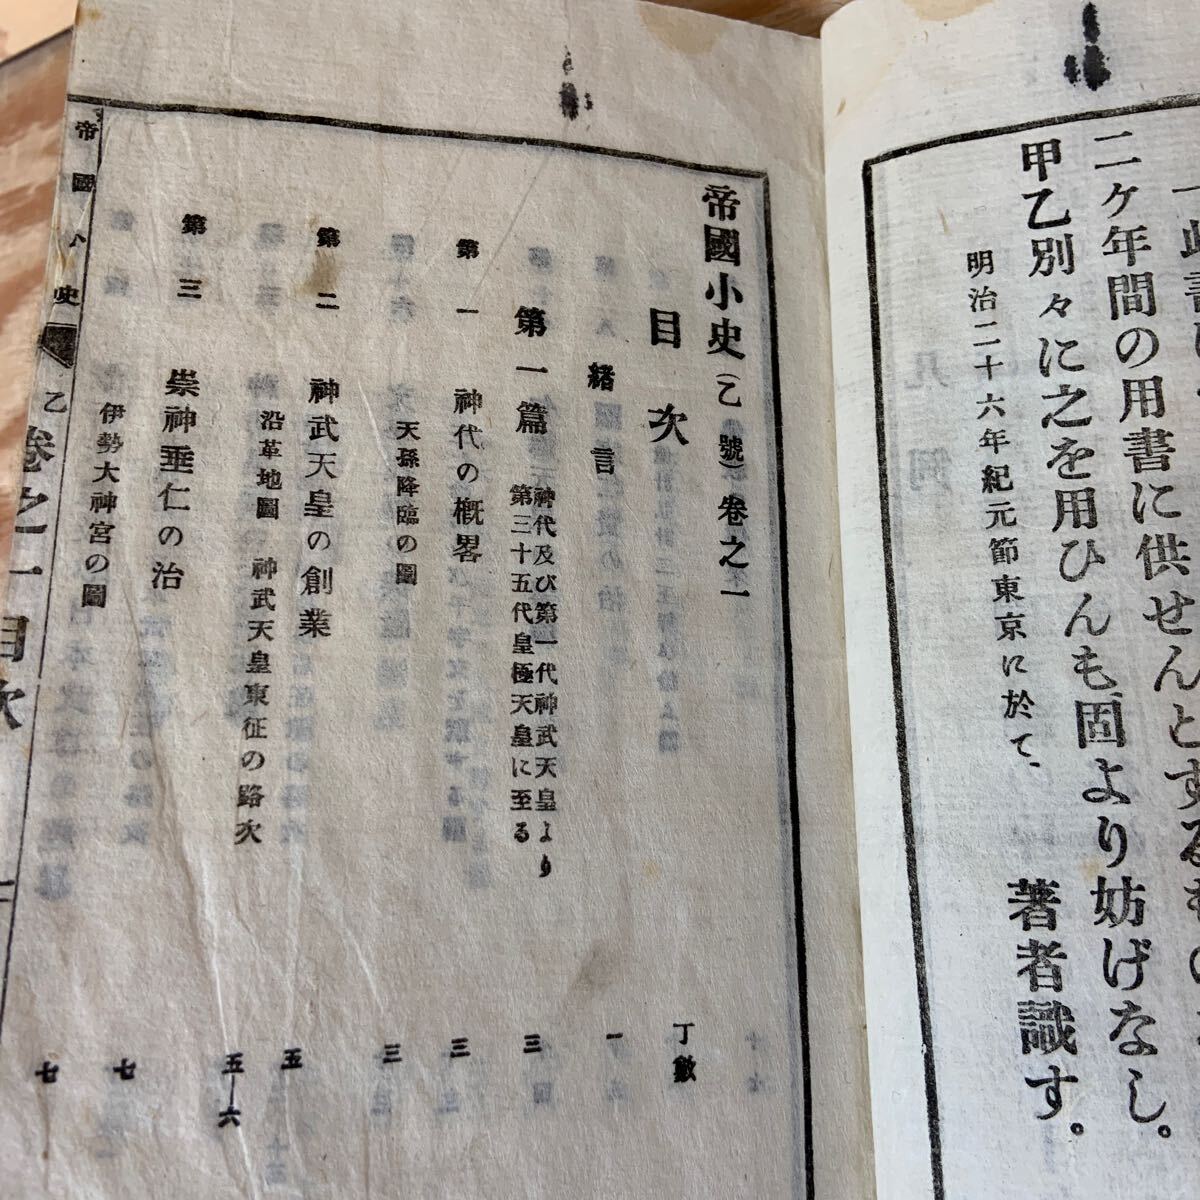 二ケ年間の用書に供せんとするもの
甲乙別々に之を用ひんも固より妨げなし。
明治二十六年紀元節東京に於て、
著者識す。
帝國小史(乙號)卷之一
目次
丁數
緒言 一
第一篇 神代及び第一代神武天皇より
第三十五代皇極天皇に至る 三
第一 神代の概畧 三
天孫降臨の圖 三
第二 神武天皇の創業 五
沿革地圖 神武天皇東征の路次 五—六
第三 崇神垂仁の治 七
伊勢大神宮の圖 七
帝國小史 乙卷之一 目次 一